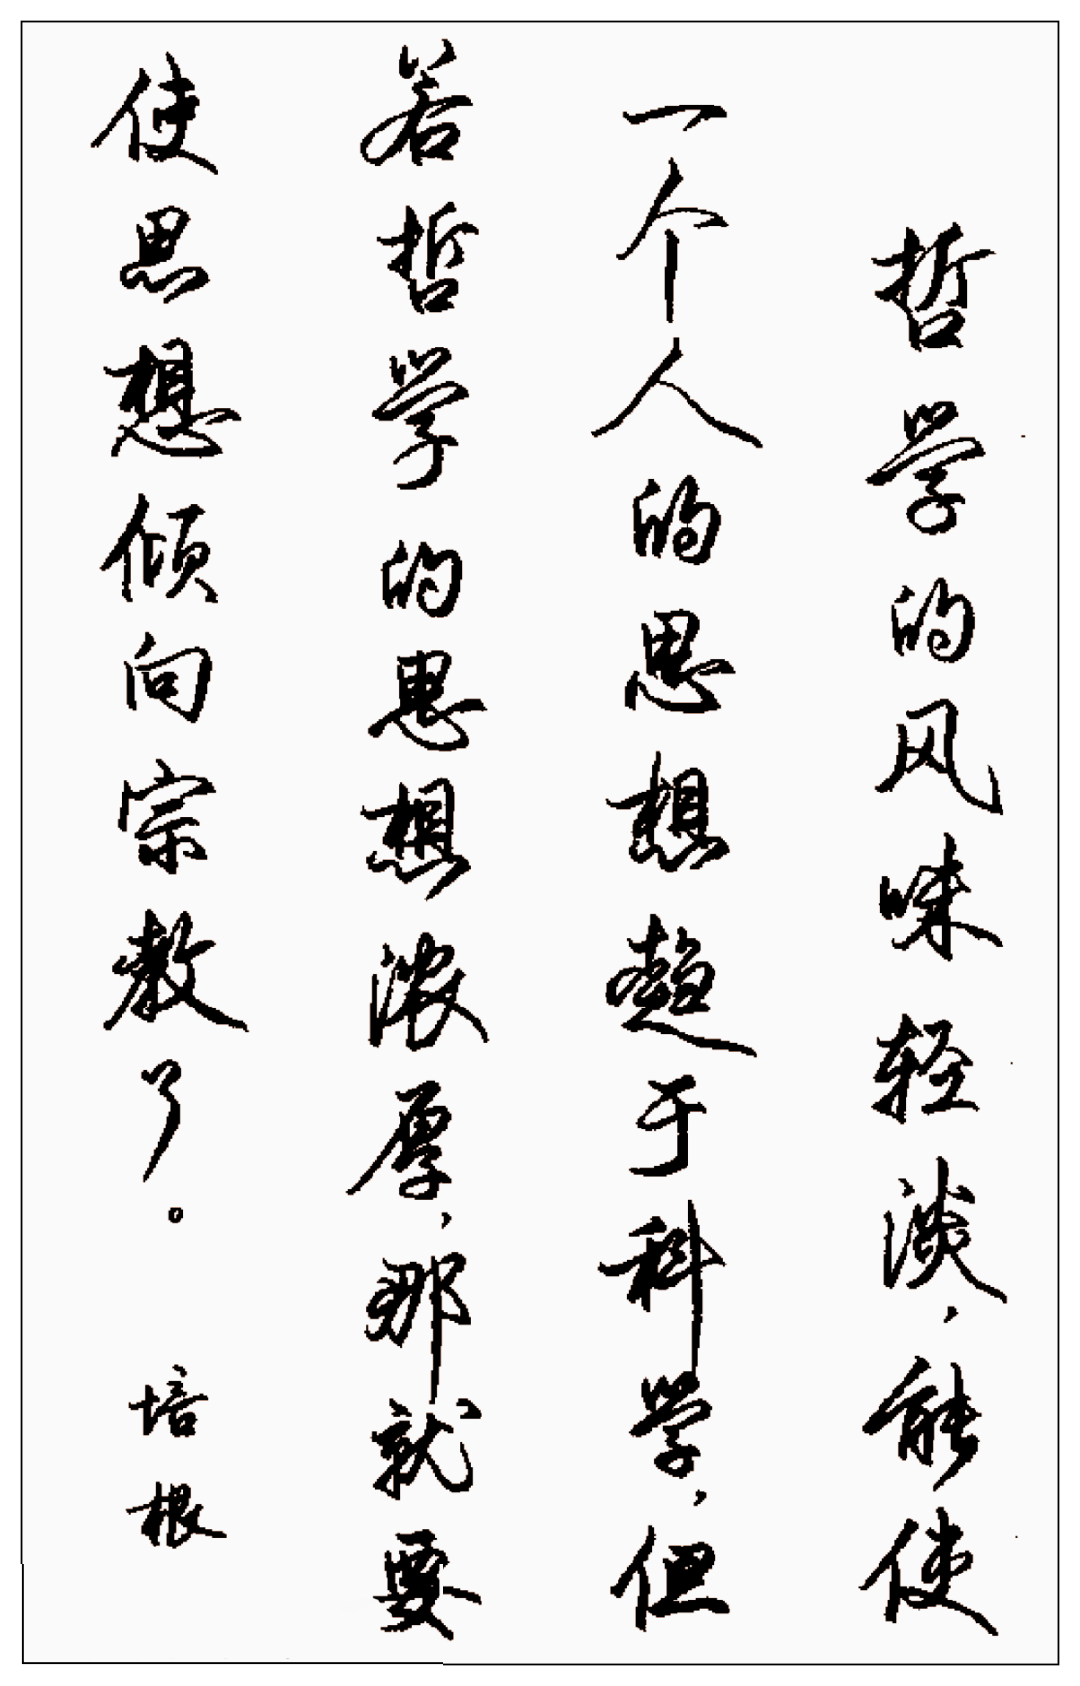 哲学的风味轻淡，能使
一个人的思想趋于科学，但
若哲学的思想浓厚，那就要
使思想倾向宗教了。
培根